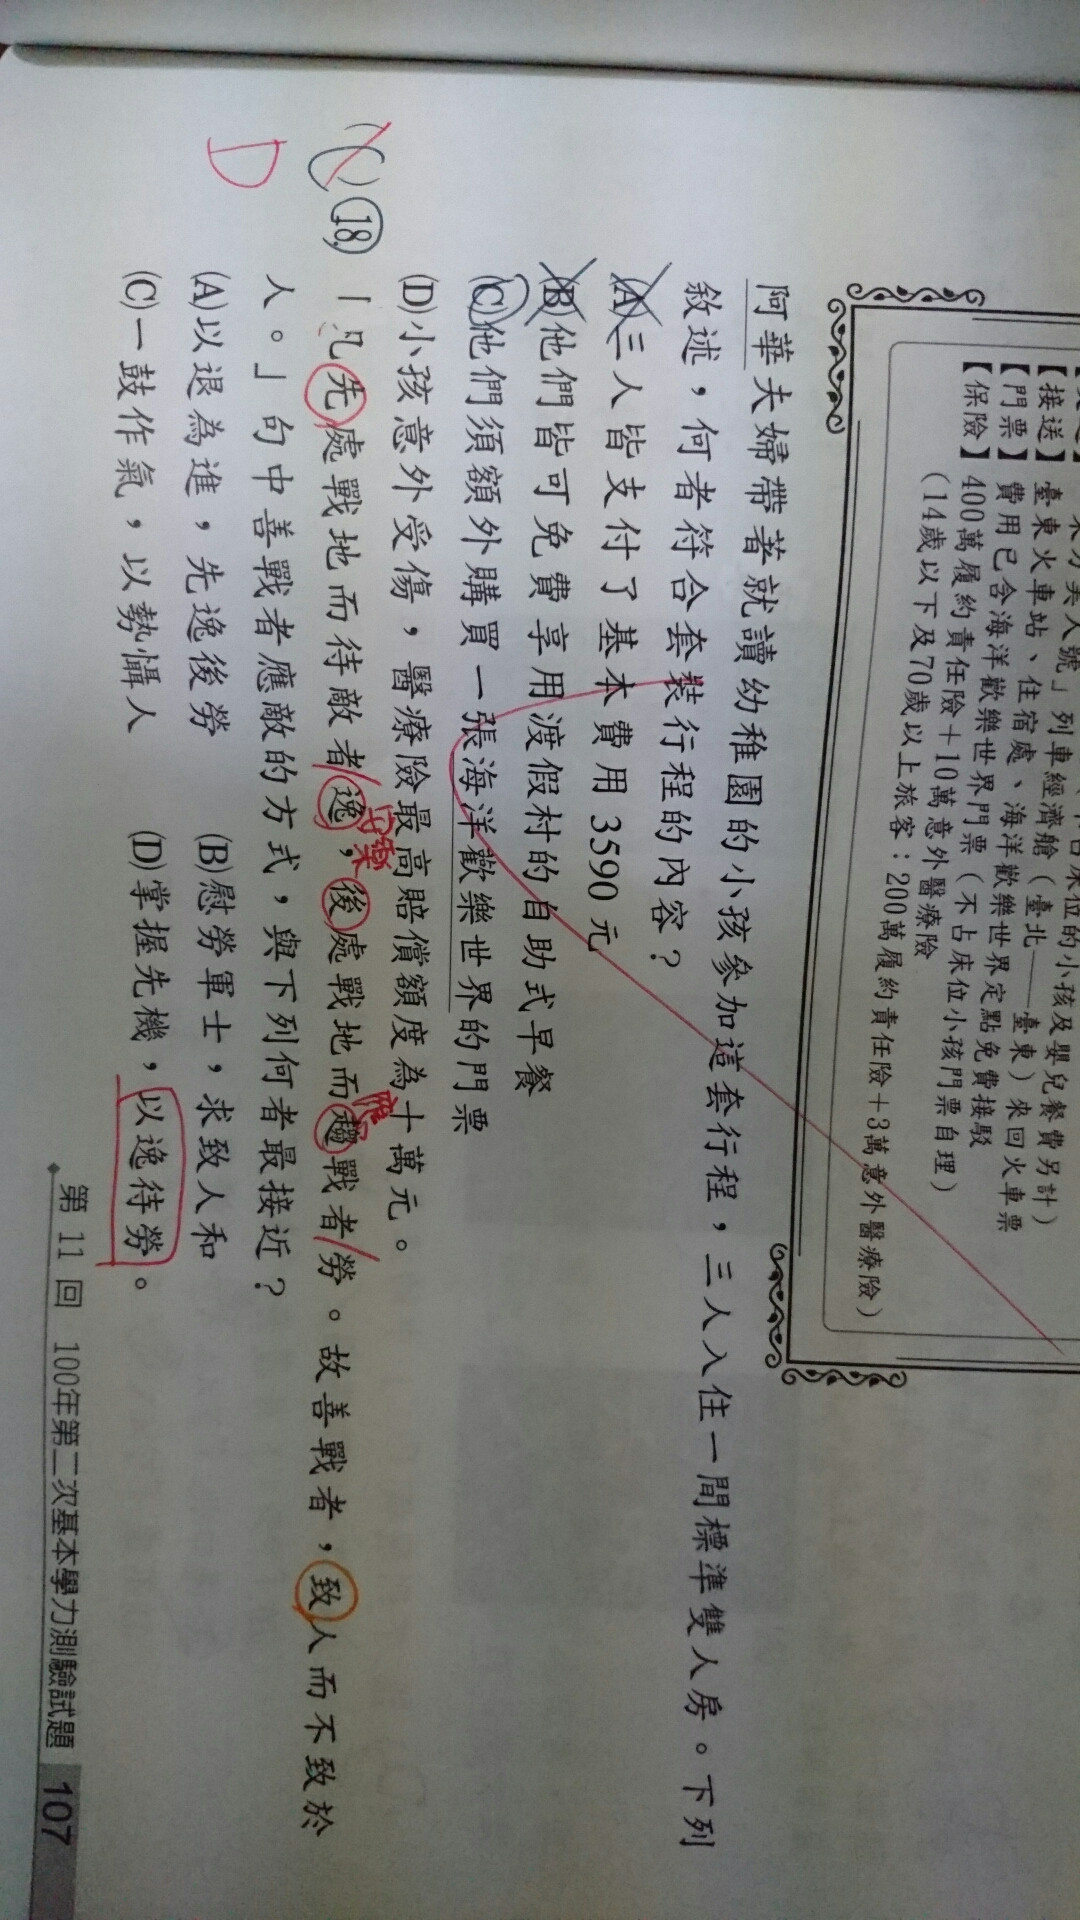 床位的小孩及嬰兒餐費另計）
列車經濟艙（臺北——臺東）來回火車票
【接送】臺東火車站、住宿處、海洋歡樂世界定點免費接駁
【門票】費用已含海洋歡樂世界門票（不占床位小孩門票自理）
【保險】400萬履約責任險＋10萬意外醫療險
（14歲以下及70歲以上旅客：200萬履約責任險＋3萬意外醫療險）
阿華夫婦帶著就讀幼稚園的小孩參加這套行程，三人入住一間標準雙人房。下列
敘述，何者符合套裝行程的內容？
(A)三人皆支付了基本費用3590元
(B)他們皆可免費享用渡假村的自助式早餐
(C)他們須額外購買一張海洋歡樂世界的門票
(D)小孩意外受傷，醫療險最高賠償額度為十萬元。
(C) 18.「凡先處戰地而待敵者逸，後處戰地而趨戰者勞。故善戰者，致人而不致於
D
人。」句中善戰者應敵的方式，與下列何者最接近？
(A)以退為進，先逸後勞 (B)慰勞軍士，求致人和
(C)一鼓作氣，以勢懾人 (D)掌握先機，以逸待勞。
第 11 回 100年第二次基本學力測驗試題 107